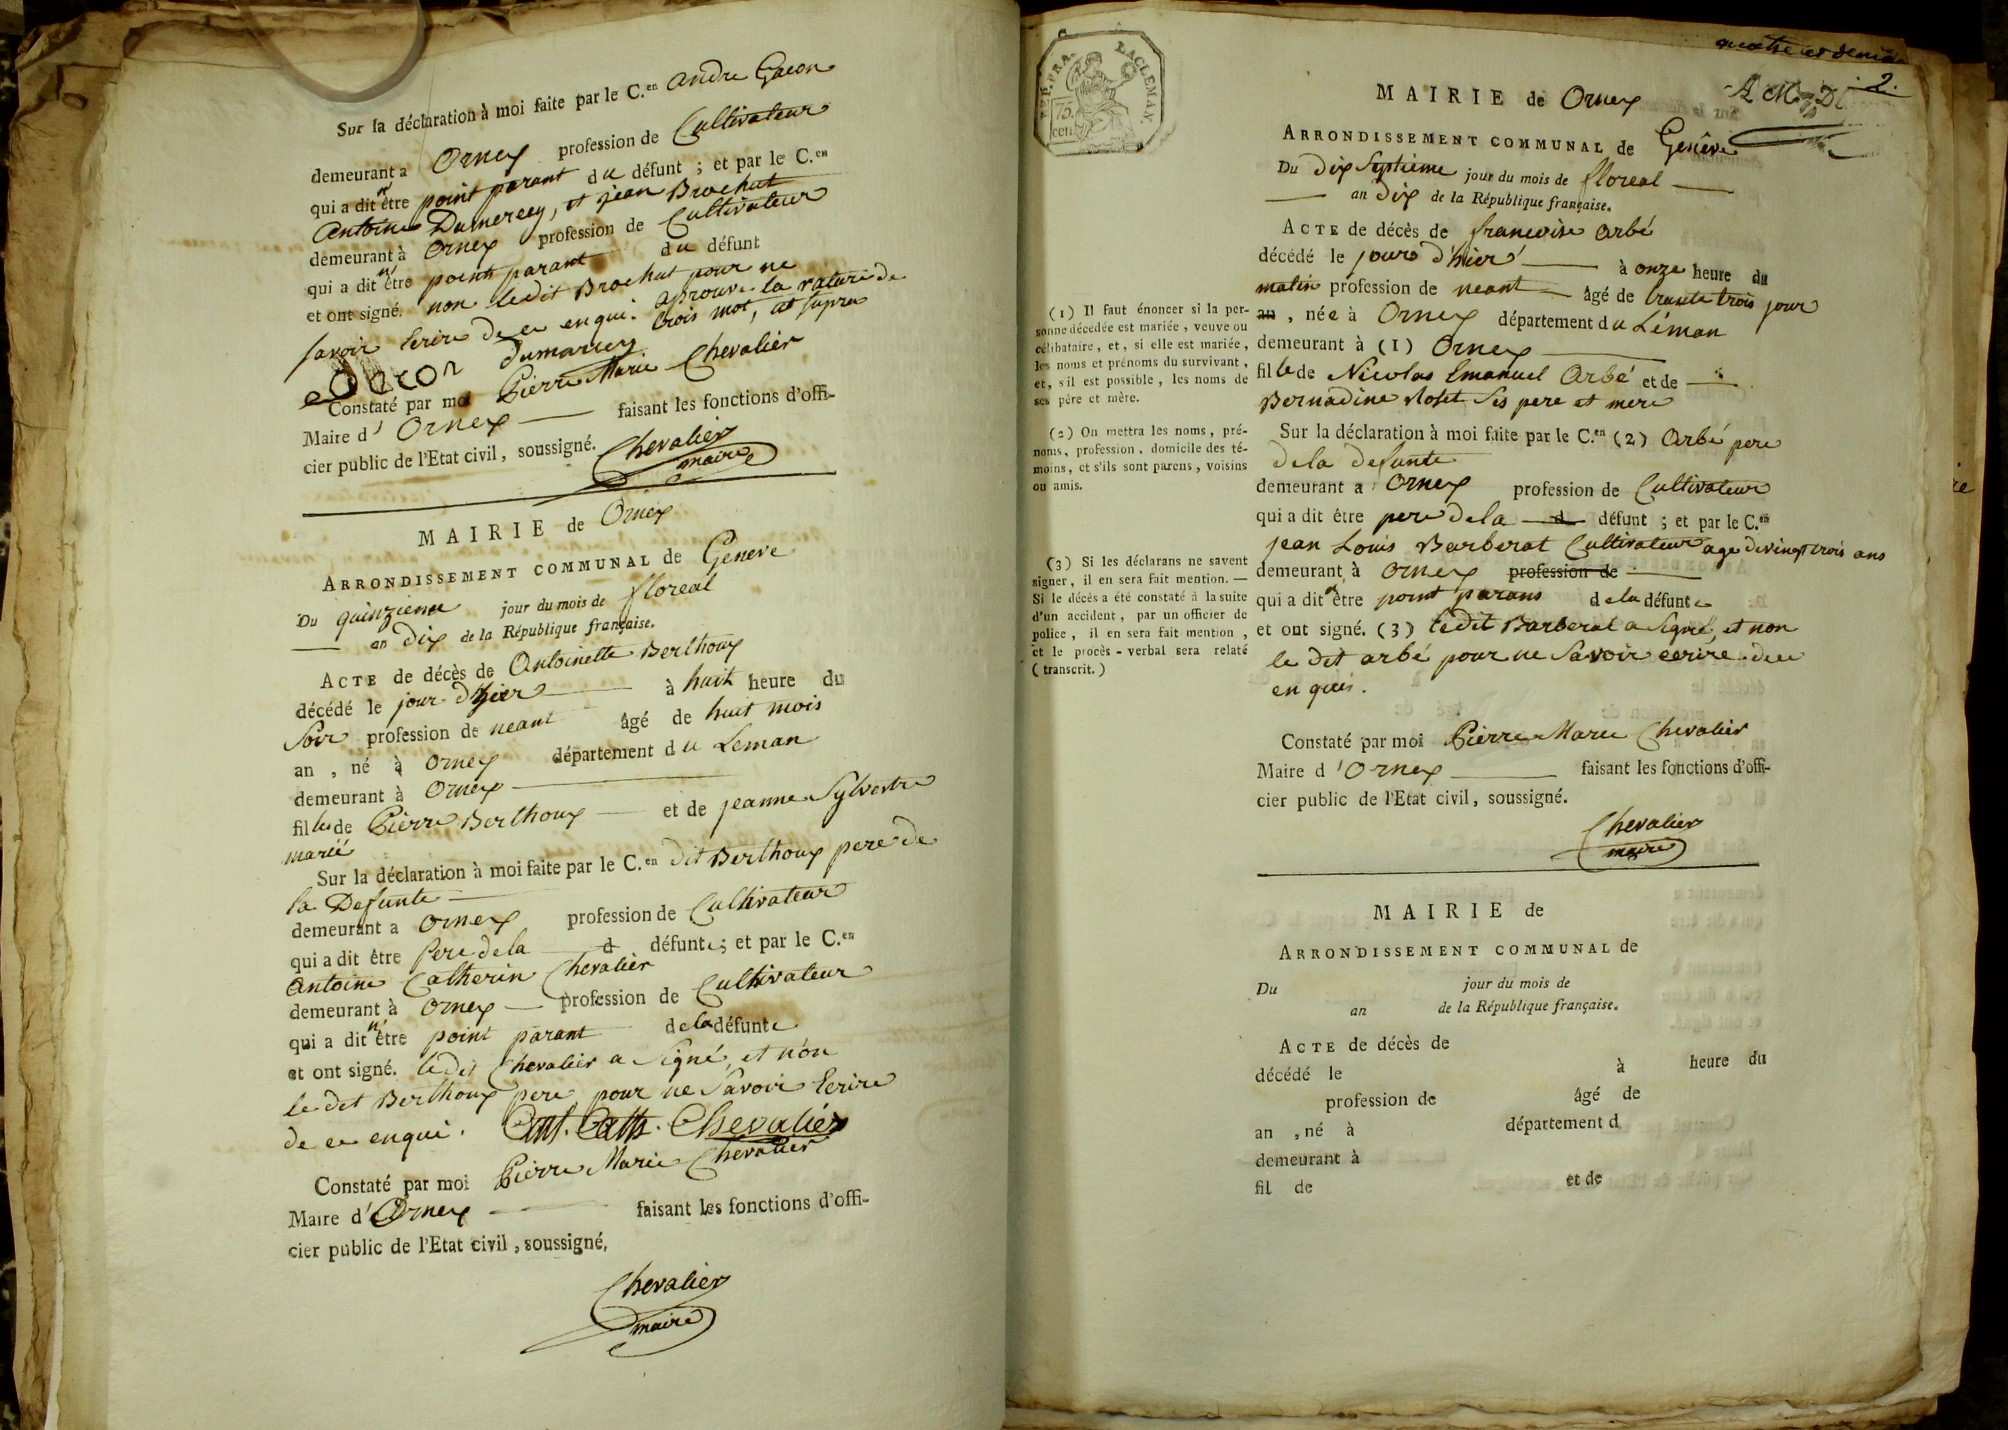 Sur la déclaration à moi faite par le C.en andre Gacon
demeurant a Ornex profession de Cultivateur
qui a dit n' être point parant du défunt ; et par le C.en
Antoine Dumercey, et jean Brochut
demeurant à Ornex profession de Cultivateur
qui a dit n' être point parant du défunt
et ont signé. non ledit Brochut pour ne
savoir Ecrire de ce enqui. aprouve la rature de
trois mot, ut supra
gacon dumarcey
Constaté par moi Pierre Marie Chevalier
Maire d' Ornex faisant les fonctions d'offi-
cier public de l'Etat civil, soussigné. Chevalier
maire
MAIRIE de Ornex
ARRONDISSEMENT COMMUNAL de Geneve
Du quinzieme jour du mois de floreal
an Dix de la République française.
ACTE de décès de Antoinette Berthoux
décédé le jour d'hier à huit heure du
Soir profession de neant âgé de huit mois
an , né à Ornex département du Leman
demeurant à Ornex
filles de Pierre Berthoux et de jeanne Sylvestre
marié
Sur la déclaration à moi faite par le C.en dit Berthoux pere de
la Defunte
demeurant a Ornex profession de Cultivateur
qui a dit être Pere de la d défunte ; et par le C.en
Antoine Catherin Chevalier
demeurant à Ornex profession de Cultivateur
qui a dit n' être point parant de la défunte
et ont signé. ledit Chevalier a Signé, et non
le dit Berthoux pere pour ne Savoir Ecrire
de ce enqui. Ant. Cath. Chevalier
Constaté par moi Pierre Marie Chevalier
Maire d' Ornex faisant les fonctions d'offi-
cier public de l'Etat civil, soussigné,
Chevalier
maire
REP. FRA.
75.
cen.
quatre et dernier
2.
MAIRIE de Ornex
ARRONDISSEMENT COMMUNAL de Genêve
Du dix Septieme jour du mois de floreal
an Dix de la République française.
ACTE de décès de francoise arbé
décédé le jour d'hier à onze heure du
matin profession de neant âgé de trante trois jour
an , née à Ornex département du Léman
demeurant à (1) Ornex
fille de Nicolas Emanuel Arbé et de
Bernadine Rosit Ses pere et mere
Sur la déclaration à moi faite par le C.en (2) Arbé pere
de la defunte
demeurant a Ornex profession de Cultivateur
qui a dit être pere de la d défunt ; et par le C.en
jean Louis Barberat Cultivateur age de vingt trois ans
demeurant à Ornex profession de
qui a dit n' être point parans de la défunte
et ont signé. (3) ledit Barberat a Signé, et non
le dit arbé pour ne Savoir ecrire de ce
en quis.
Constaté par moi Pierre Marie Chevalier
Maire d' Ornex faisant les fonctions d'offi-
cier public de l'Etat civil, soussigné.
Chevalier
maire
(1) Il faut énoncer si la per-
sonne décédée est mariée, veuve ou
célibataire, et, si elle est mariée,
les noms et prénoms du survivant,
et, s'il est possible, les noms de
ses père et mère.
(2) On mettra les noms, pré-
noms, profession, domicile des té-
moins, et s'ils sont parens, voisins
ou amis.
(3) Si les déclarans ne savent
signer, il en sera fait mention. —
Si le décès a été constaté à la suite
d'un accident, par un officier de
police, il en sera fait mention,
et le procès-verbal sera relaté
( transcrit. )
MAIRIE de
ARRONDISSEMENT COMMUNAL de
Du jour du mois de
an de la République française.
ACTE de décès de
décédé le à heure du
profession de âgé de
an , né à département d
demeurant à
fil de et de